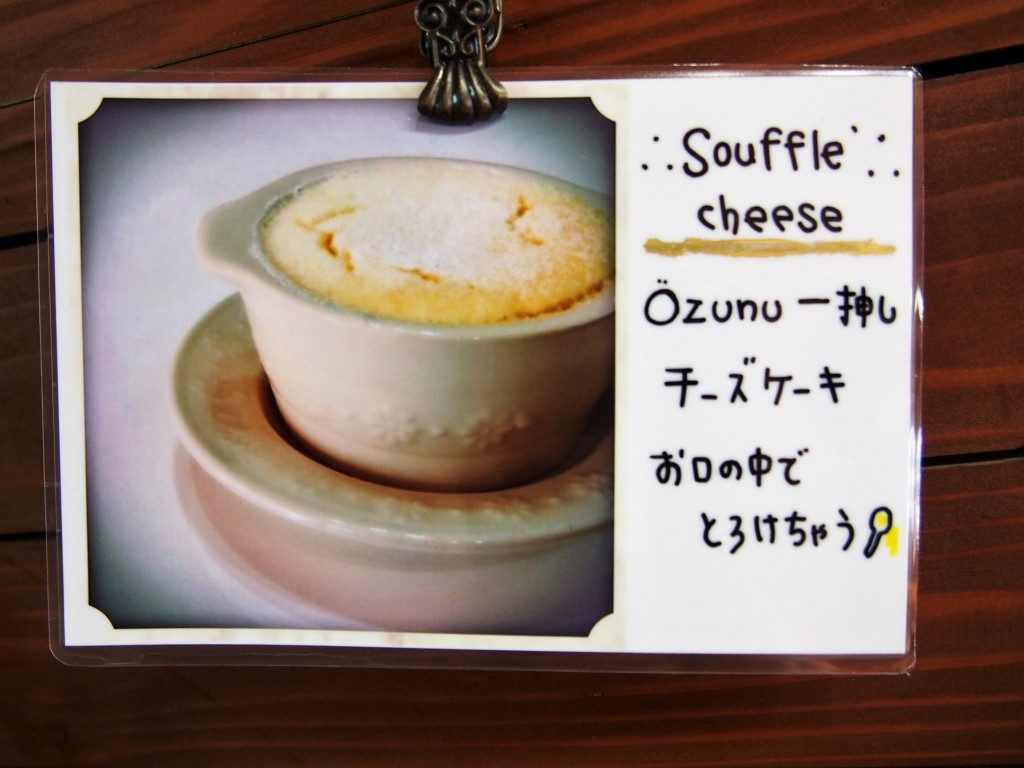 Souffle
cheese
Özunu 一押し
チーズケーキ
お口の中で
とろけちゃう